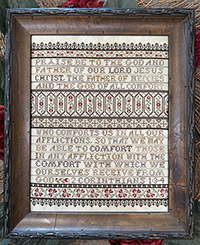 PRAISE BE TO THE GOD AND
FATHER OF OUR LORD JESUS
CHRIST THE FATHER OF MERCIES
AND THE GOD OF ALL COMFORT
WHO COMFORTS US IN ALL OUR
AFFLICTIONS, SO THAT WE MAY
BE ABLE TO COMFORT THOSE
IN ANY AFFLICTION WITH THE
COMFORT WITH WHICH WE
OURSELVES RECEIVE FROM
GOD 2 CORINTHIANS 1:3-4